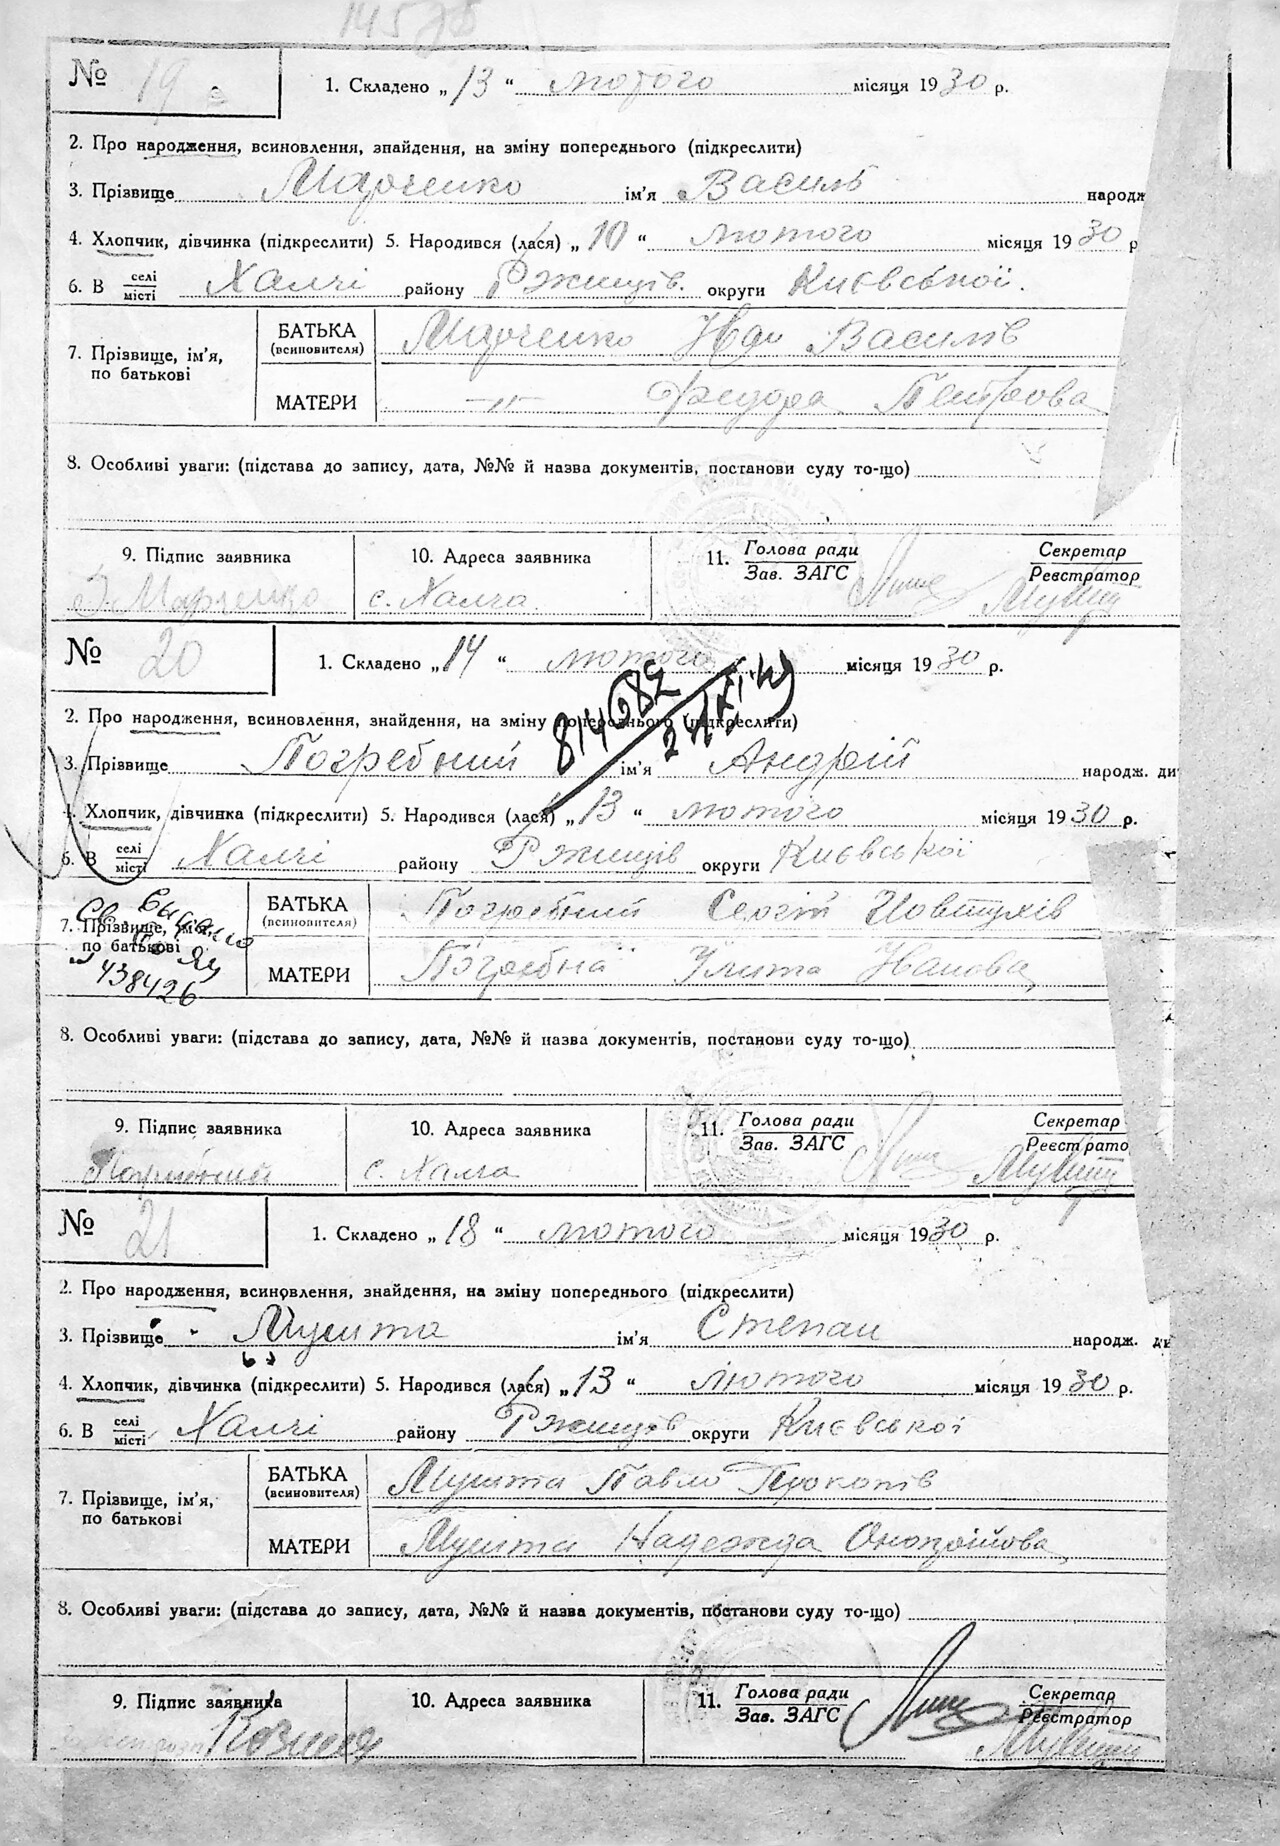 № 19
1. Складено „13“ лютого місяця 1930 р.
2. Про народження, всиновлення, знайдення, на зміну попереднього (підкреслити)
3. Прізвище Марченко ім'я Василь народж
4. Хлопчик, дівчинка (підкреслити) 5. Народився (лася) „10“ лютого місяця 1930 р
6. В селі/місті Халчі району Ржищів. округи Києвської.
7. Прізвище, ім'я, по батькові
БАТЬКА (всиновителя) Марченко Іван Василів
МАТЕРИ —"— Федора Петрова
8. Особливі уваги: (підстава до запису, дата, №№ й назва документів, постанови суду то-що)
9. Підпис заявника 10. Адреса заявника 11. Голова ради/Зав. ЗАГС Секретар/Реєстратор
Марченко с. Халча
№ 20
1. Складено „14“ лютого місяця 1930 р.
2. Про народження, всиновлення, знайдення, на зміну попереднього (підкреслити)
3. Прізвище Погребний ім'я Андрій народж. ди
4. Хлопчик, дівчинка (підкреслити) 5. Народився (лася) „13“ лютого місяця 1930 р.
6. В селі/місті Халчі району Ржищів округи Києвської
7. Прізвище, ім'я, по батькові
438426
БАТЬКА (всиновителя) Погребний Сергій Йовтухів
МАТЕРИ Погребна Улита Іванова
8. Особливі уваги: (підстава до запису, дата, №№ й назва документів, постанови суду то-що)
9. Підпис заявника 10. Адреса заявника 11. Голова ради/Зав. ЗАГС Секретар/Реєстрато
с. Халча
№ 21
1. Складено „18“ лютого місяця 1930 р.
2. Про народження, всиновлення, знайдення, на зміну попереднього (підкреслити)
3. Прізвище Мушта ім'я Степан народж. ди
4. Хлопчик, дівчинка (підкреслити) 5. Народився (лася) „13“ лютого місяця 1930 р.
6. В селі/місті Халчі району Ржищів округи Києвської
7. Прізвище, ім'я, по батькові
БАТЬКА (всиновителя) Мушта Павло Прокопів
МАТЕРИ Мушта Надежда Онопрійова
8. Особливі уваги: (підстава до запису, дата, №№ й назва документів, постанови суду то-що)
9. Підпис заявника 10. Адреса заявника 11. Голова ради/Зав. ЗАГС Секретар/Реєстратор